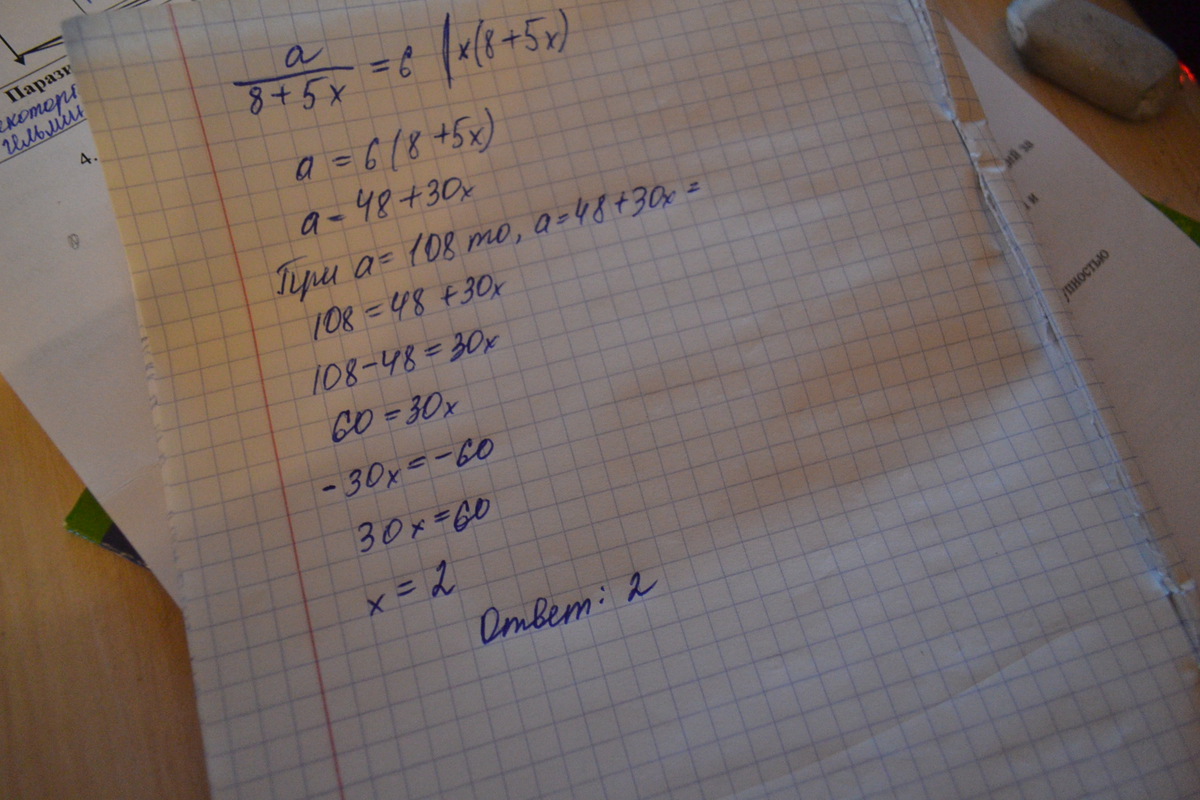 Парази
екотор
гельмин
4.
a/(8+5x) = 6 | x(8+5x)
a = 6(8+5x)
a = 48+30x
При a = 108 то, a=48+30x =
108 = 48 +30x
108-48 = 30x
60 = 30x
-30x = -60
30x = 60
x = 2
Ответ: 2
за
и
лностью